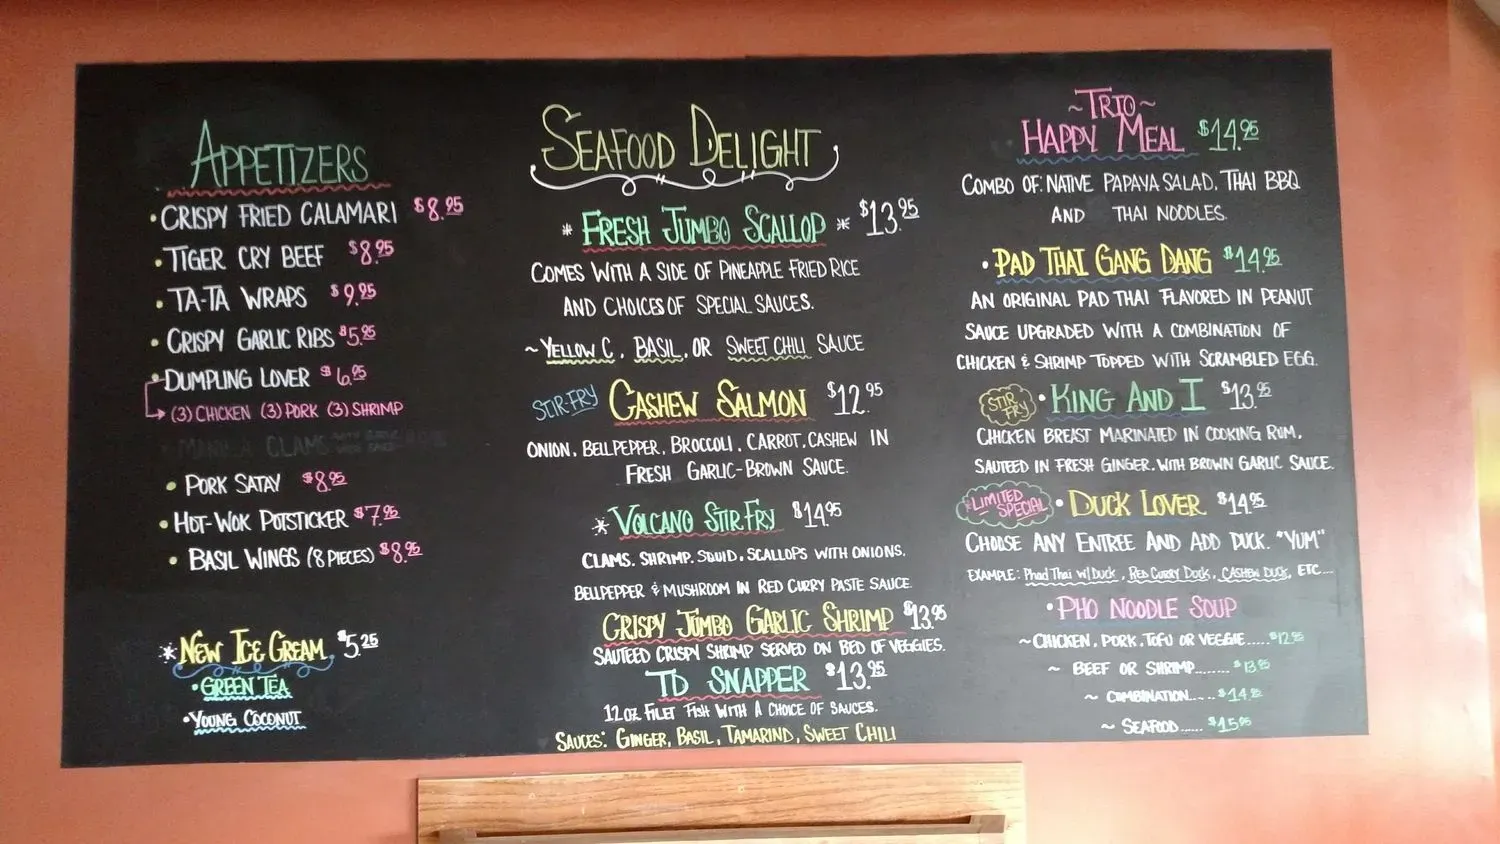 APPETIZERS
• CRISPY FRIED CALAMARI $8.95
• TIGER CRY BEEF $8.95
• TA-TA WRAPS $9.95
• CRISPY GARLIC RIBS $5.95
• DUMPLING LOVER $6.95
(3) CHICKEN (3) PORK (3) SHRIMP
CLAMS
• PORK SATAY $8.95
• HOT-WOK POTSTICKER $7.95
• BASIL WINGS (8 PIECES) $8.95
* NEW ICE CREAM $5.25
• GREEN TEA
• YOUNG COCONUT
SEAFOOD DELIGHT
* FRESH JUMBO SCALLOP * $13.95
COMES WITH A SIDE OF PINEAPPLE FRIED RICE
AND CHOICES OF SPECIAL SAUCES.
~ YELLOW C, BASIL, OR SWEET CHILI SAUCE
STIR-FRY CASHEW SALMON $12.95
ONION, BELLPEPPER, BROCCOLI, CARROT, CASHEW IN
FRESH GARLIC-BROWN SAUCE.
* VOLCANO STIR FRY $14.95
CLAMS. SHRIMP. SQUID. SCALLOPS WITH ONIONS.
BELLPEPPER & MUSHROOM IN RED CURRY PASTE SAUCE.
CRISPY JUMBO GARLIC SHRIMP $13.95
SAUTEED CRISPY SHRIMP SERVED ON BED OF VEGGIES.
TD SNAPPER $13.95
12 OZ FILET FISH WITH A CHOICE OF SAUCES.
SAUCES: GINGER, BASIL, TAMARIND, SWEET CHILI
~ TRIO ~
HAPPY MEAL $14.95
COMBO OF: NATIVE PAPAYA SALAD, THAI BBQ
AND THAI NOODLES.
• PAD THAI GANG DANG $14.95
AN ORIGINAL PAD THAI FLAVORED IN PEANUT
SAUCE UPGRADED WITH A COMBINATION OF
CHICKEN & SHRIMP TOPPED WITH SCRAMBLED EGG.
STIR FRY • KING AND I $13.95
CHICKEN BREAST MARINATED IN COOKING RUM,
SAUTEED IN FRESH GINGER. WITH BROWN GARLIC SAUCE.
*LIMITED SPECIAL • DUCK LOVER $14.95
CHOOSE ANY ENTREE AND ADD DUCK. "YUM"
EXAMPLE: Phad Thai w/ Duck, RED CURRY DUCK, CASHEW DUCK, ETC...
• PHO NOODLE SOUP
~ CHICKEN, PORK, TOFU OR VEGGIE..... $12.95
~ BEEF OR SHRIMP........ $13.95
~ COMBINATION..... $14.95
~ SEAFOOD...... $15.95